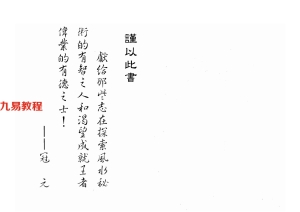 謹以此書
獻給那些志在探索風水秘
術的有智之人和渴望成就王者
偉業的有德之士！
——冠元
九易教程